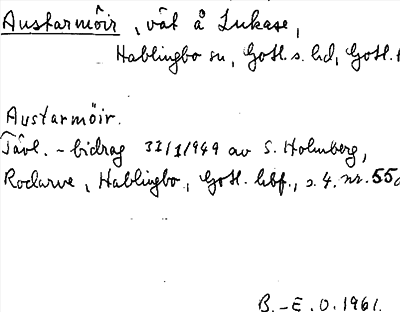 Austarmôir, våt å Lukase,
Hablingbo sn, Gotl. s. hd, Gotl.
Austarmöir.
Tävl.-bidrag 31/1 1949 av S. Holmberg,
Rodarve, Hablingbo, Gotl. hbf., s. 4. nr. 55
B.-E. O. 1961.